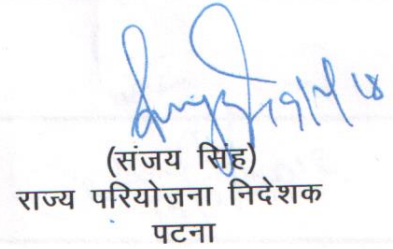 (संजय सिंह)
राज्य परियोजना निदेशक
पटना